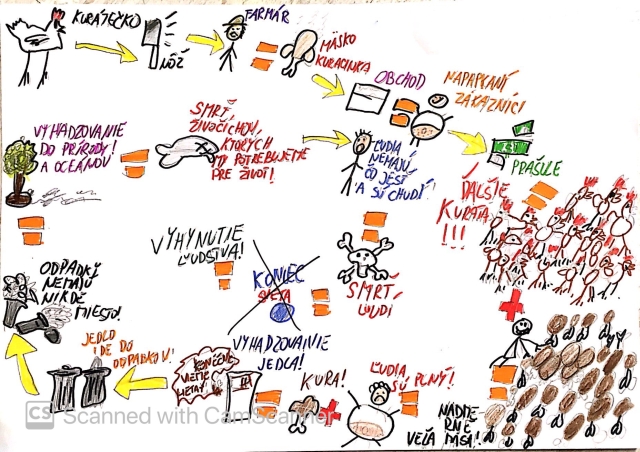 KURIATEČKO
NÔŽ
FARMÁR
MÄSKO
KURACINKA
OBCHOD
NAPAPKANÍ
ZÁKAZNÍCI
PRAŠULE
ĎALŠIE
KURATÁ
!!!
VYHADZOVANIE
DO PRÍRODY!
A OCEÁNOV
SMRŤ
ŽIVOČÍCHOV,
KTORÝCH
MY POTREBUJEME
PRE ŽIVOT!
ĽUDIA
NEMAJÚ
ČO JESŤ
A SÚ CHUDÍ!
VYHYNUTIE
ĽUDSTVA!
KONIEC
SVETA
SMRŤ
ĽUDÍ
ODPADKY
NEMAJÚ
NIKDE
MIESTO!
JEDLO
IDE DO
ODPADKOV!
KONEČNE
VYHADZOVANIE
JEDLA!
KURA!
ĽUDIA
SÚ PLNÝ!
NADME
RNE
VEĽA MÄSA!
CS Scanned with CamScanner